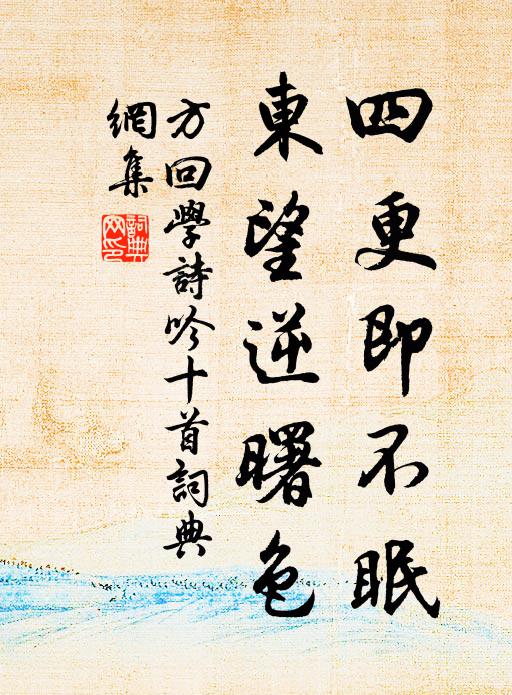 四更即不眠
東望逆曙色
方回學詩吟十首詞典
網集
詞典網印